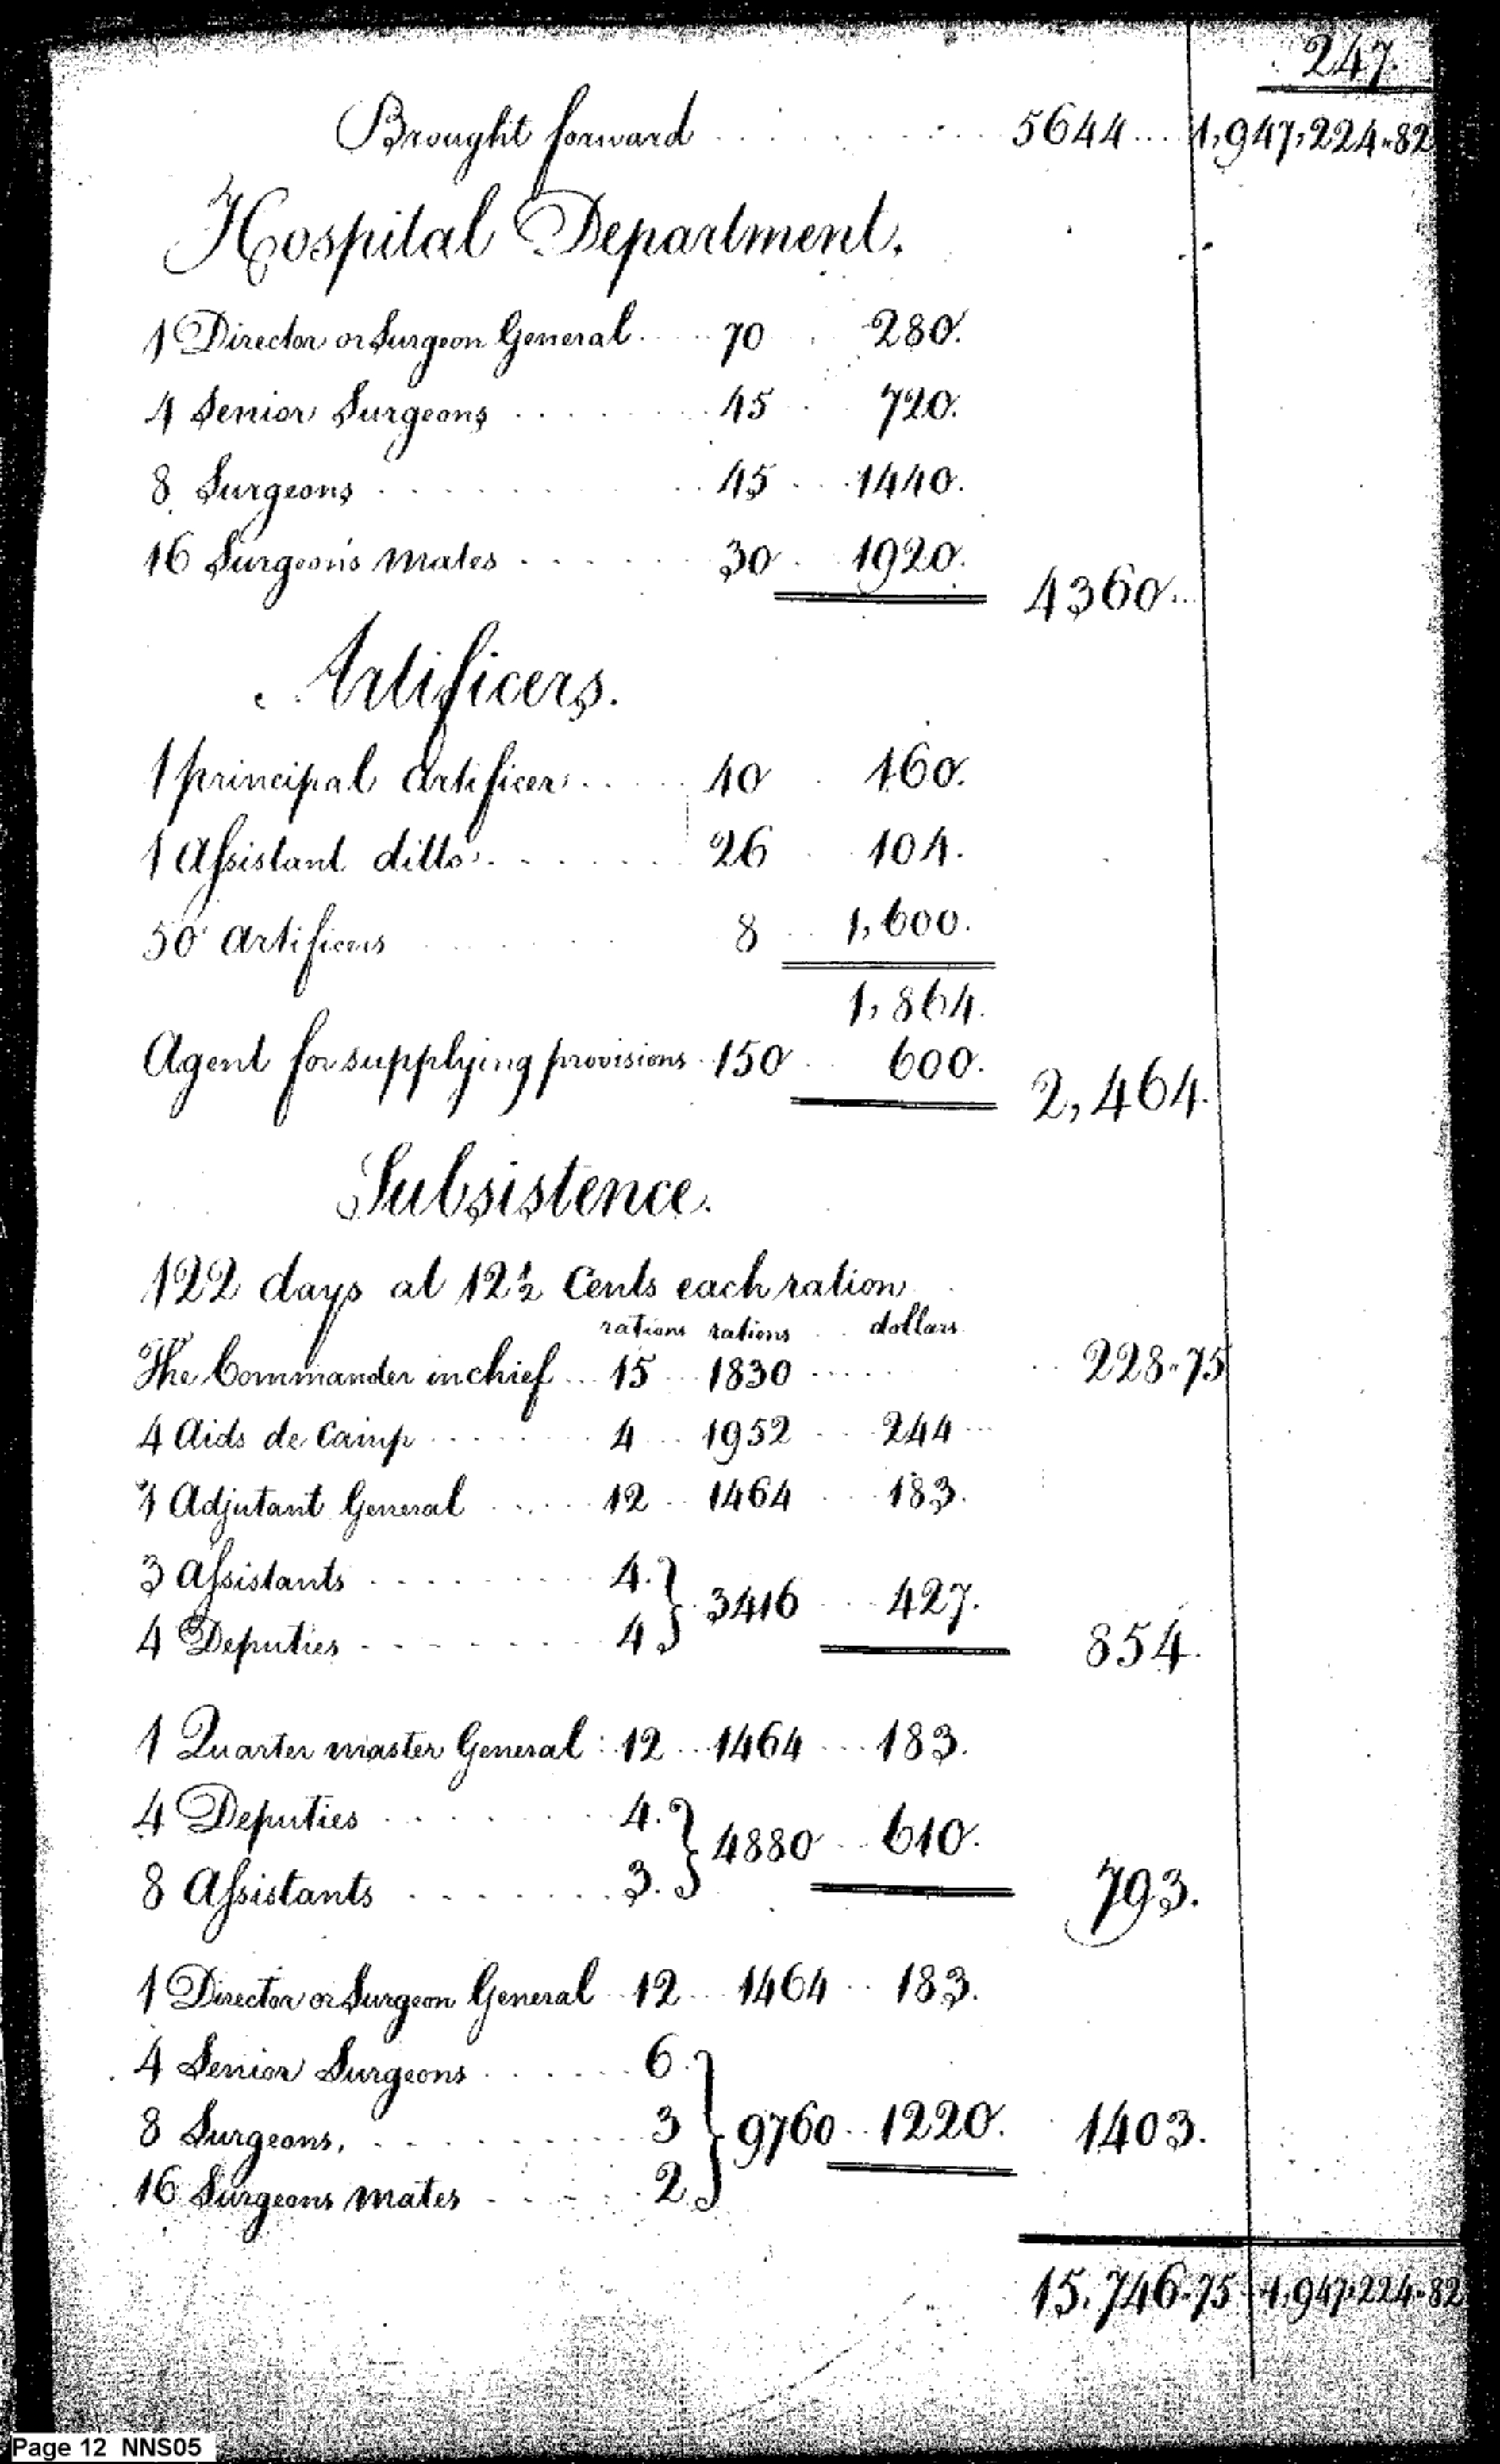 247.
Brought forward 5644 1,947,224.82
Hospital Department.
1 Director or Surgeon General 70 280.
4 Senior Surgeons 45 720.
8 Surgeons 45 1440.
16 Surgeon's mates 30 1920.
4360.
Artificers.
1 principal artificer 40 160.
1 Assistant ditto 26 104.
50 artificers 8 1,600.
1,864.
Agent for supplying provisions 150 600.
2,464.
Subsistence.
122 days at 12½ Cents each ration
rations rations dollars
The Commander in chief 15 1830 228.75
4 Aids de Camp 4 1952 244
1 Adjutant General 12 1464 183.
3 Assistants 4.
3416 427.
4 Deputies 4
854.
1 Quarter master General 12 1464 183.
4 Deputies 4.
4880 610.
8 Assistants 3.
793.
1 Director or Surgeon General 12 1464 183.
4 Senior Surgeons 6.
8 Surgeons. 3 9760 1220. 1403.
16 Surgeons mates 2
15.746.75 1.947.224.82
Page 12 NNS05